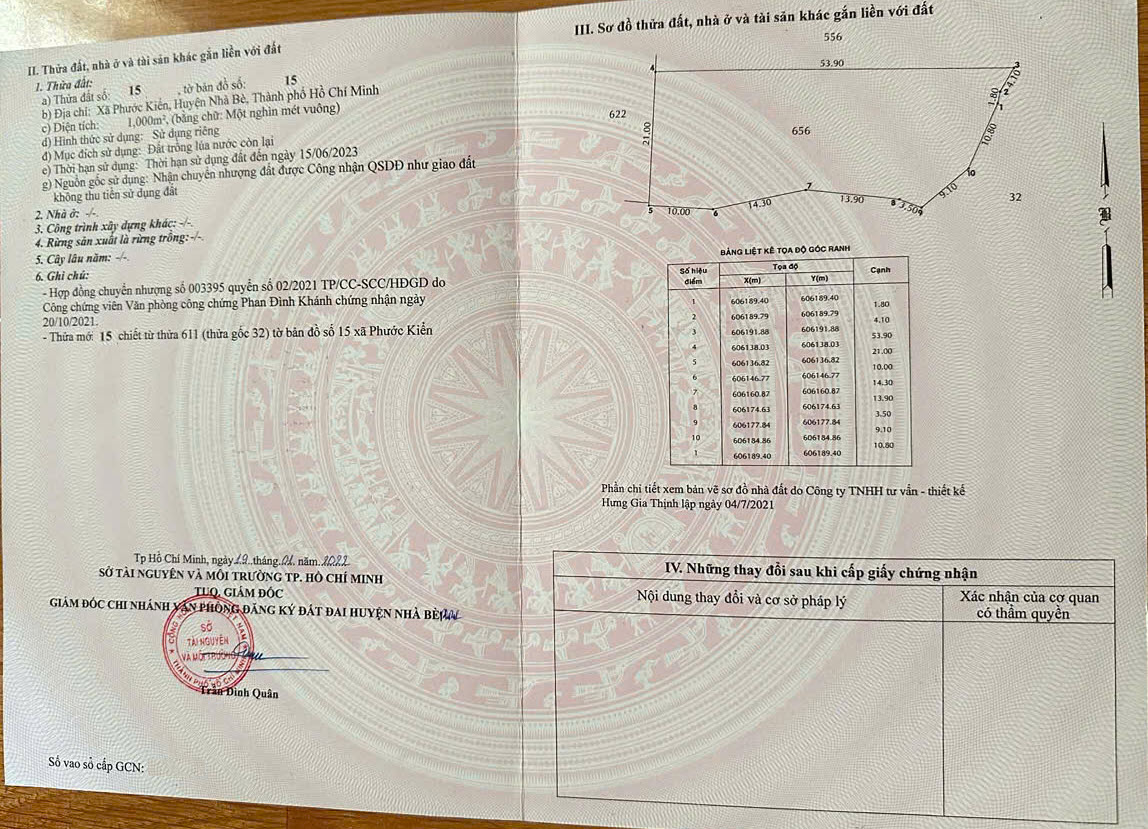 II. Thửa đất, nhà ở và tài sản khác gắn liền với đất
1. Thửa đất:
a) Thửa đất số: 15 , tờ bản đồ số: 15
b) Địa chỉ: Xã Phước Kiển, Huyện Nhà Bè, Thành phố Hồ Chí Minh
c) Diện tích: 1,000m², (bằng chữ: Một nghìn mét vuông)
d) Hình thức sử dụng: Sử dụng riêng
đ) Mục đích sử dụng: Đất trồng lúa nước còn lại
e) Thời hạn sử dụng: Thời hạn sử dụng đất đến ngày 15/06/2023
g) Nguồn gốc sử dụng: Nhận chuyển nhượng đất được Công nhận QSDĐ như giao đất
không thu tiền sử dụng đất
2. Nhà ở: -/-.
3. Công trình xây dựng khác: -/-.
4. Rừng sản xuất là rừng trồng:-/-.
5. Cây lâu năm: -/-.
6. Ghi chú:
- Hợp đồng chuyển nhượng số 003395 quyển số 02/2021 TP/CC-SCC/HĐGD do
Công chứng viên Văn phòng công chứng Phan Đình Khánh chứng nhận ngày
20/10/2021.
- Thửa mớ: 15 chiết từ thửa 611 (thửa gốc 32) tờ bản đồ số 15 xã Phước Kiển
Tp Hồ Chí Minh, ngày 19 tháng 01 năm 2022
SỞ TÀI NGUYÊN VÀ MÔI TRƯỜNG TP. HỒ CHÍ MINH
TUQ. GIÁM ĐỐC
GIÁM ĐỐC CHI NHÁNH VĂN PHÒNG ĐĂNG KÝ ĐẤT ĐAI HUYỆN NHÀ BÈ
SỞ
TÀI NGUYÊN
VÀ MÔI TRƯỜNG
THÀNH PHỐ HỒ CHÍ MINH
Trần Đình Quân
Số vao sổ cấp GCN:
III. Sơ đồ thửa đất, nhà ở và tài sản khác gắn liền với đất
556
4 53.90 3
4.10
2
1.80
1
622 21.00 656 10.80
10
7 9.10 32
5 10.00 6 14.30 13.90 8 3.50 9
BẢNG LIỆT KÊ TỌA ĐỘ GÓC RANH
Số hiệu điểm Tọa độ Cạnh
X(m) Y(m)
1 606189.40 606189.40
1.80
2 606189.79 606189.79
4.10
3 606191.88 606191.88
53.90
4 606138.03 606138.03
21.00
5 606136.82 606136.82
10.00
6 606146.77 606146.77
14.30
7 606160.87 606160.87
13.90
8 606174.63 606174.63
3.50
9 606177.84 606177.84
9.10
10 606184.86 606184.86
10.80
1 606189.40 606189.40
Phần chi tiết xem bản vẽ sơ đồ nhà đất do Công ty TNHH tư vấn - thiết kế
Hưng Gia Thịnh lập ngày 04/7/2021
IV. Những thay đổi sau khi cấp giấy chứng nhận
Nội dung thay đổi và cơ sở pháp lý
Xác nhận của cơ quan
có thẩm quyền